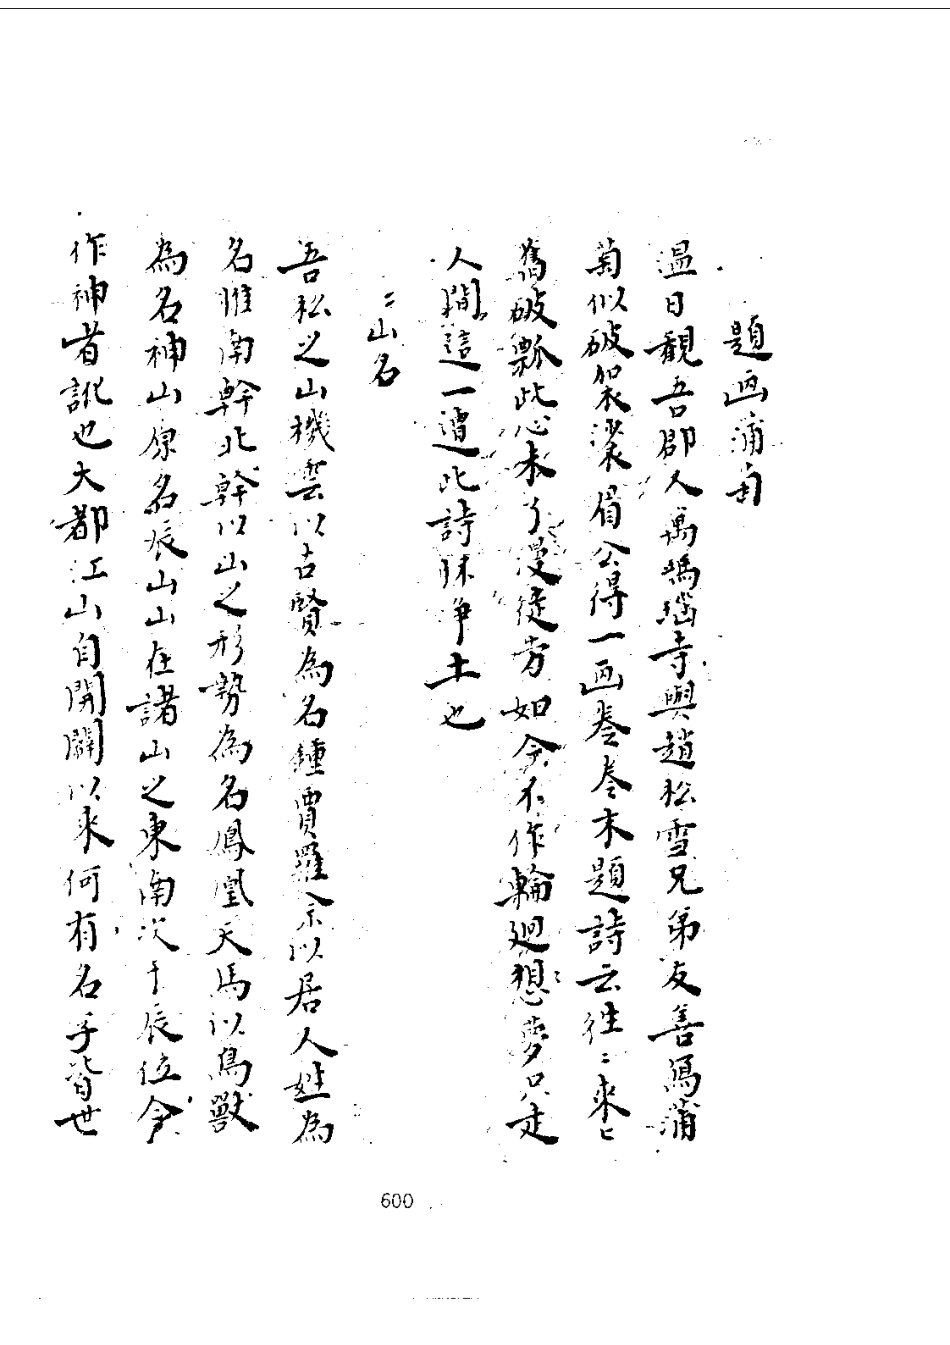 題画蒲萄
温日觀吾郡人寓瑪瑙寺與趙松雪兄弟友善寫蒲
萄似破袈裟眉公得一画卷卷末題詩云往〻來〻
舊破瓢此心未了漫徒劳如今不作輪廻想夢只走
人間這一遭此詩昧净土也
〻山名
吾松之山機雲以古賢為名鍾賈羅余以居人姓為
名惟南幹北幹以山之形勢為名鳳凰天馬以鳥獸
為名神山原名辰山山在諸山之東南次于辰位今
作神者訛也大都江山自開闢以来何有名乎皆世
600